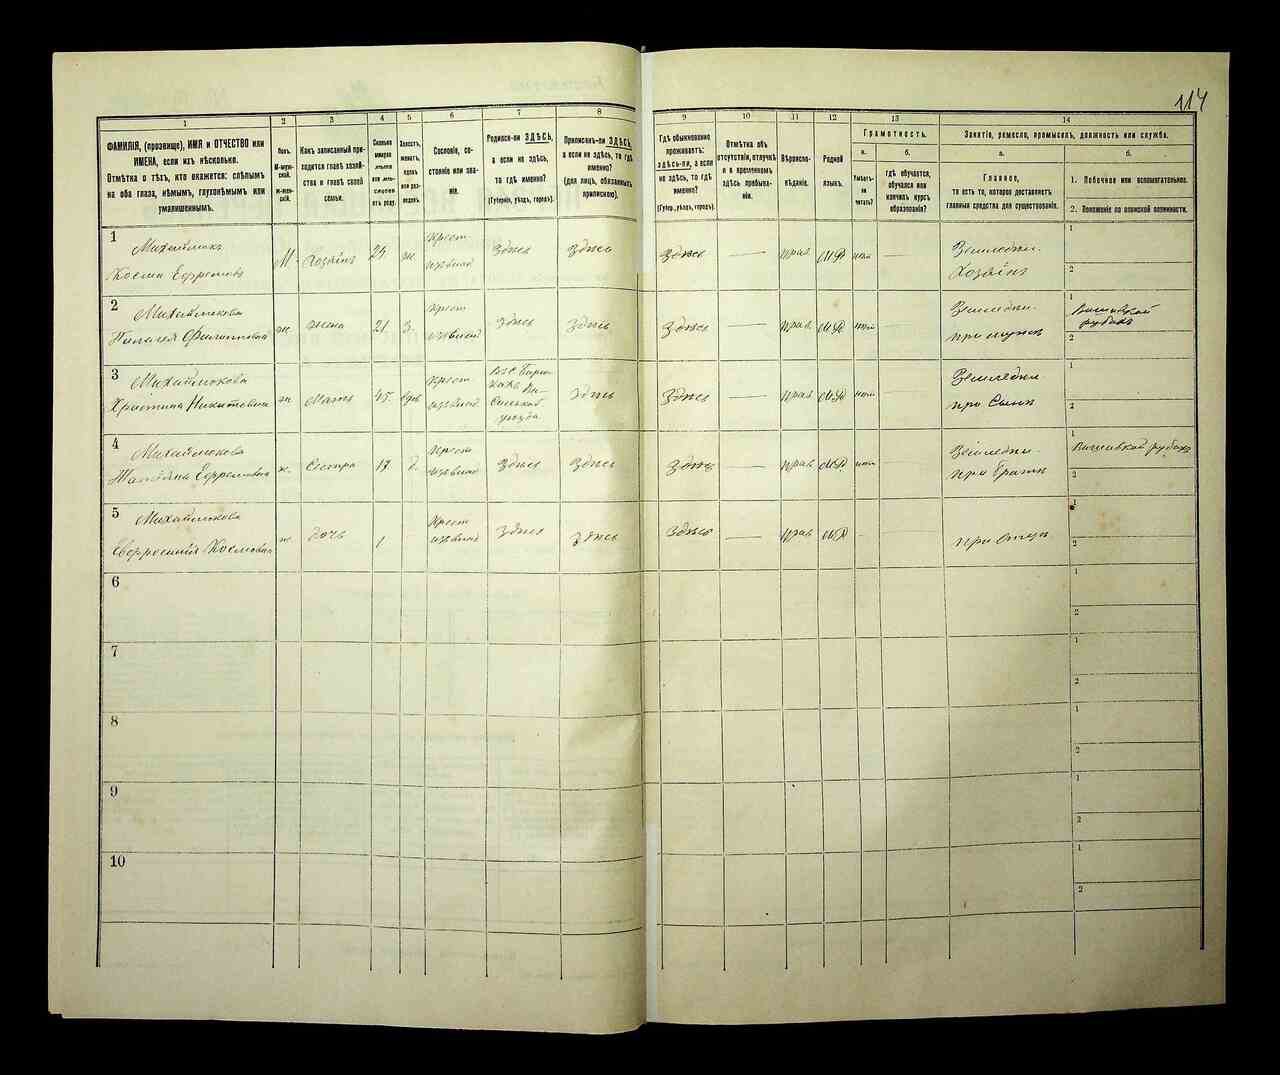 114
1
2
3
4
5
6
7
8
9
10
11
12
13
14
ФАМИЛІЯ, (прозвище), ИМЯ и ОТЧЕСТВО или
ИМЕНА, если ихъ нѣсколько.
Отмѣтка о тѣхъ, кто окажется: слѣпымъ
на оба глаза, нѣмымъ, глухонѣмымъ или
умалишеннымъ.
Полъ.
М-мужской.
ж-женскій.
Какъ записанный приходится главѣ хозяйства и главѣ своей
семьи.
Сколько
минуло
лѣтъ
или мѣсяцевъ
отъ роду.
Холостъ,
женатъ,
вдовъ
или разведенъ.
Сословіе, состояніе или званіе.
Родился-ли ЗДѢСЬ,
а если не здѣсь,
то гдѣ именно?
(Губернія, уѣздъ, городъ).
Приписанъ-ли ЗДѢСЬ,
а если не здѣсь, то гдѣ
именно?
(для лицъ, обязанныхъ
припискою).
Гдѣ обыкновенно
проживаетъ:
здѣсь-ли, а если
не здѣсь, то гдѣ
именно?
(Губерн., уѣздъ, городъ).
Отмѣтка объ
отсутствіи, отлучкѣ
и о временномъ
здѣсь пребываніи.
Вѣроисповѣданіе.
Родной
языкъ.
Грамотность.
а.
б.
Умѣетъ-ли
читать?
гдѣ обучается,
обучался или
кончилъ курсъ
образованія?
Занятіе, ремесло, промыселъ, должность или служба.
а.
б.
Главное,
то есть то, которое доставляетъ
главныя средства для существованія.
1. Побочное или вспомогательное.
2. Положеніе по воинской повинности.
1
Михайлюкъ
Косьма Ефремовъ
М.
Хозяинъ
24
ж.
Крест
Здѣсь
Здѣсь
Здѣсь
прав
МР
нѣт
Земледѣл.
Хозяинъ
1
2
2
Михайлюкова
Пелагея Филипповна
ж.
жена
21
З.
Крест
Здѣсь
Здѣсь
Здѣсь
прав
МР
нѣт
Земледѣл.
при мужѣ
1
рубахъ
2
3
Михайлюкова
Христина Никитевна
ж
Мать
45
вдов
Крест
уѣзда
Здѣсь
Здѣсь
прав
МР
нѣт
Земледѣл.
при Сынѣ
1
2
4
Михайлюкова
Татіяна Ефремовна
ж.
Сестра
17
д.
Крест
Здѣсь
Здѣсь
Здѣсь
прав
МР
нѣт
Земледѣл.
при Братѣ
1
Вышивкой рубахъ
2
5
Михайлюкова
Евфросинія Косьмовна
ж
дочь
1
Крест
Здѣсь
Здѣсь
Здѣсь
прав
МР
при Отцѣ
1
2
6
1
2
7
1
2
8
1
2
9
1
2
10
1
2